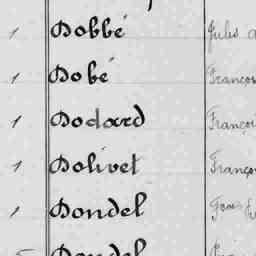 1 Dobbé Jules
1 Dobé François
1 Dodard François
1 Dolivet François
1 Dondel
Dondel